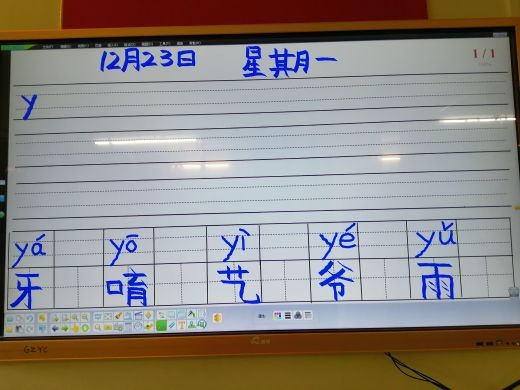 12月23日 星期一
1/1
y
yá yō yì yé yǔ
牙 唷 艺 爷 雨
GZYC